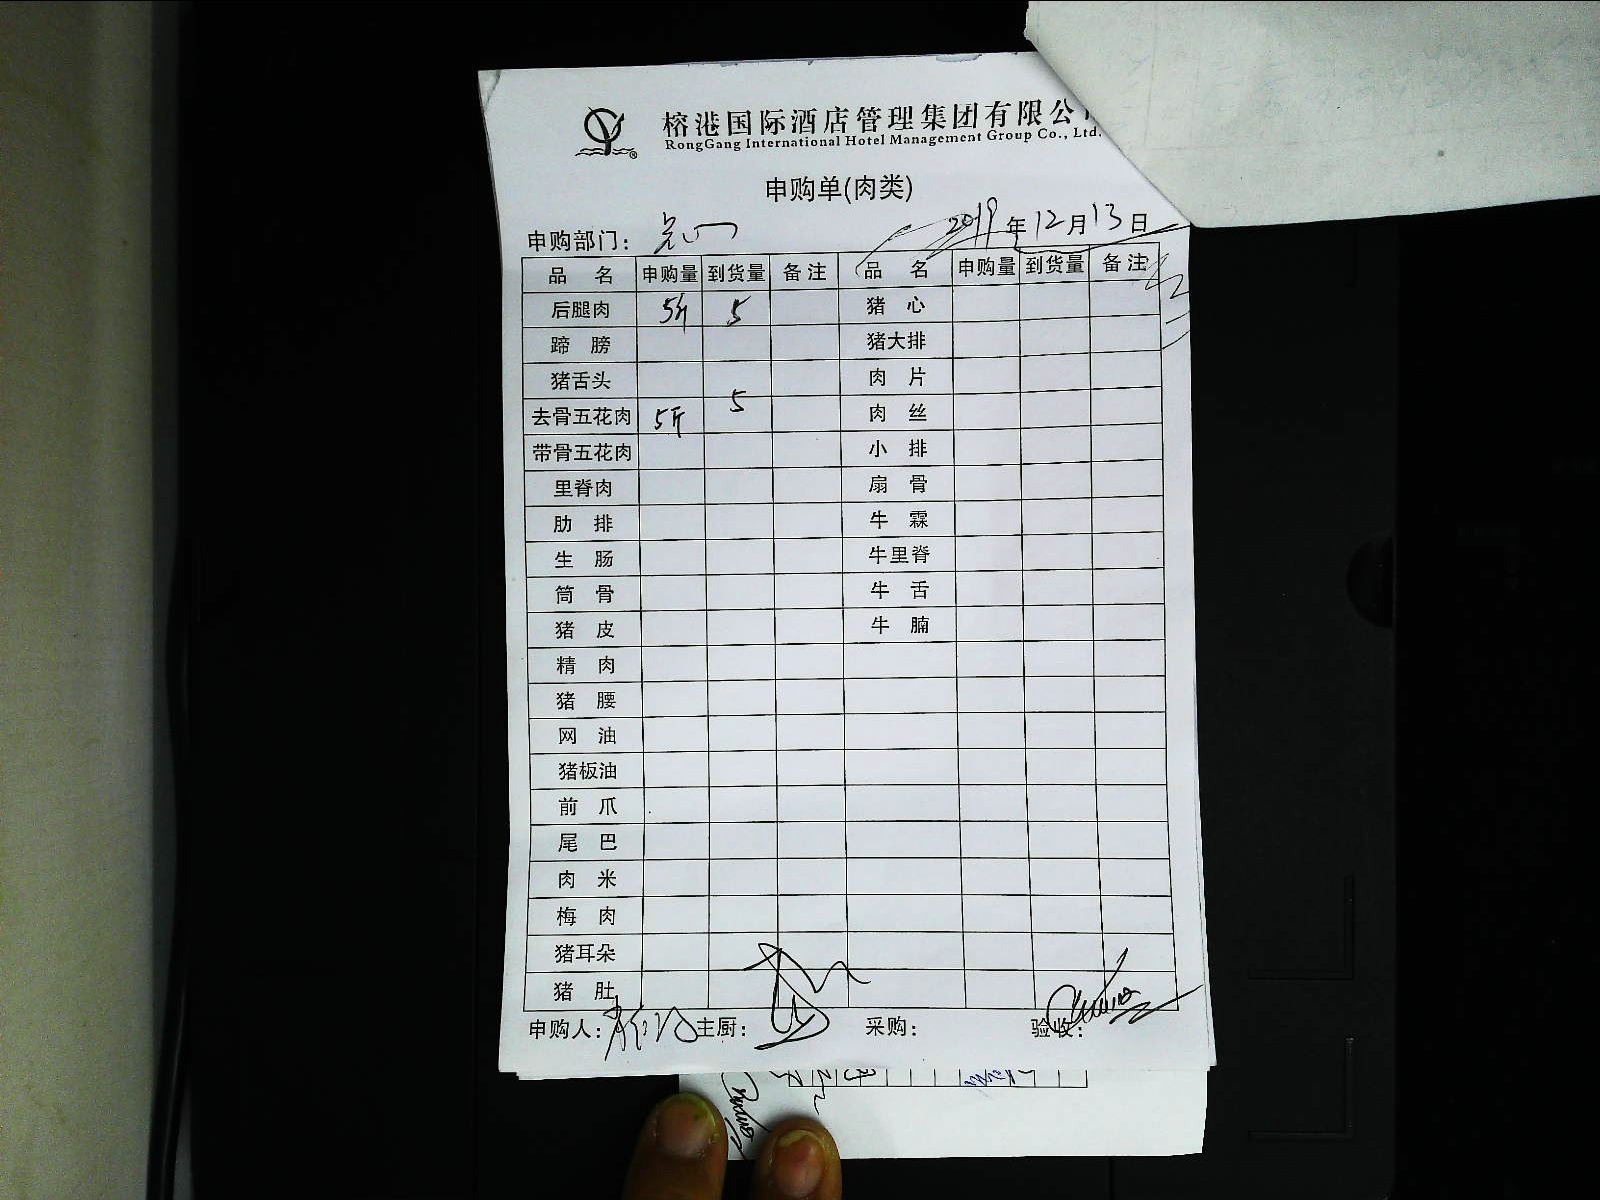 榕港国际酒店管理集团有限公
RongGang International Hotel Management Group Co., Ltd.
申购单(肉类)
申购部门: 2019年12月13日
品 名 申购量 到货量 备注 品 名 申购量 到货量 备注
后腿肉 5斤 5 猪 心
蹄 膀 猪大排
猪舌头 肉 片
去骨五花肉 5斤 5 肉 丝
带骨五花肉 小 排
里脊肉 扇 骨
肋 排 牛 霖
生 肠 牛里脊
筒 骨 牛 舌
猪 皮 牛 腩
精 肉
猪 腰
网 油
猪板油
前 爪
尾 巴
肉 米
梅 肉
猪耳朵
猪 肚
申购人: 主厨: 采购: 验收: